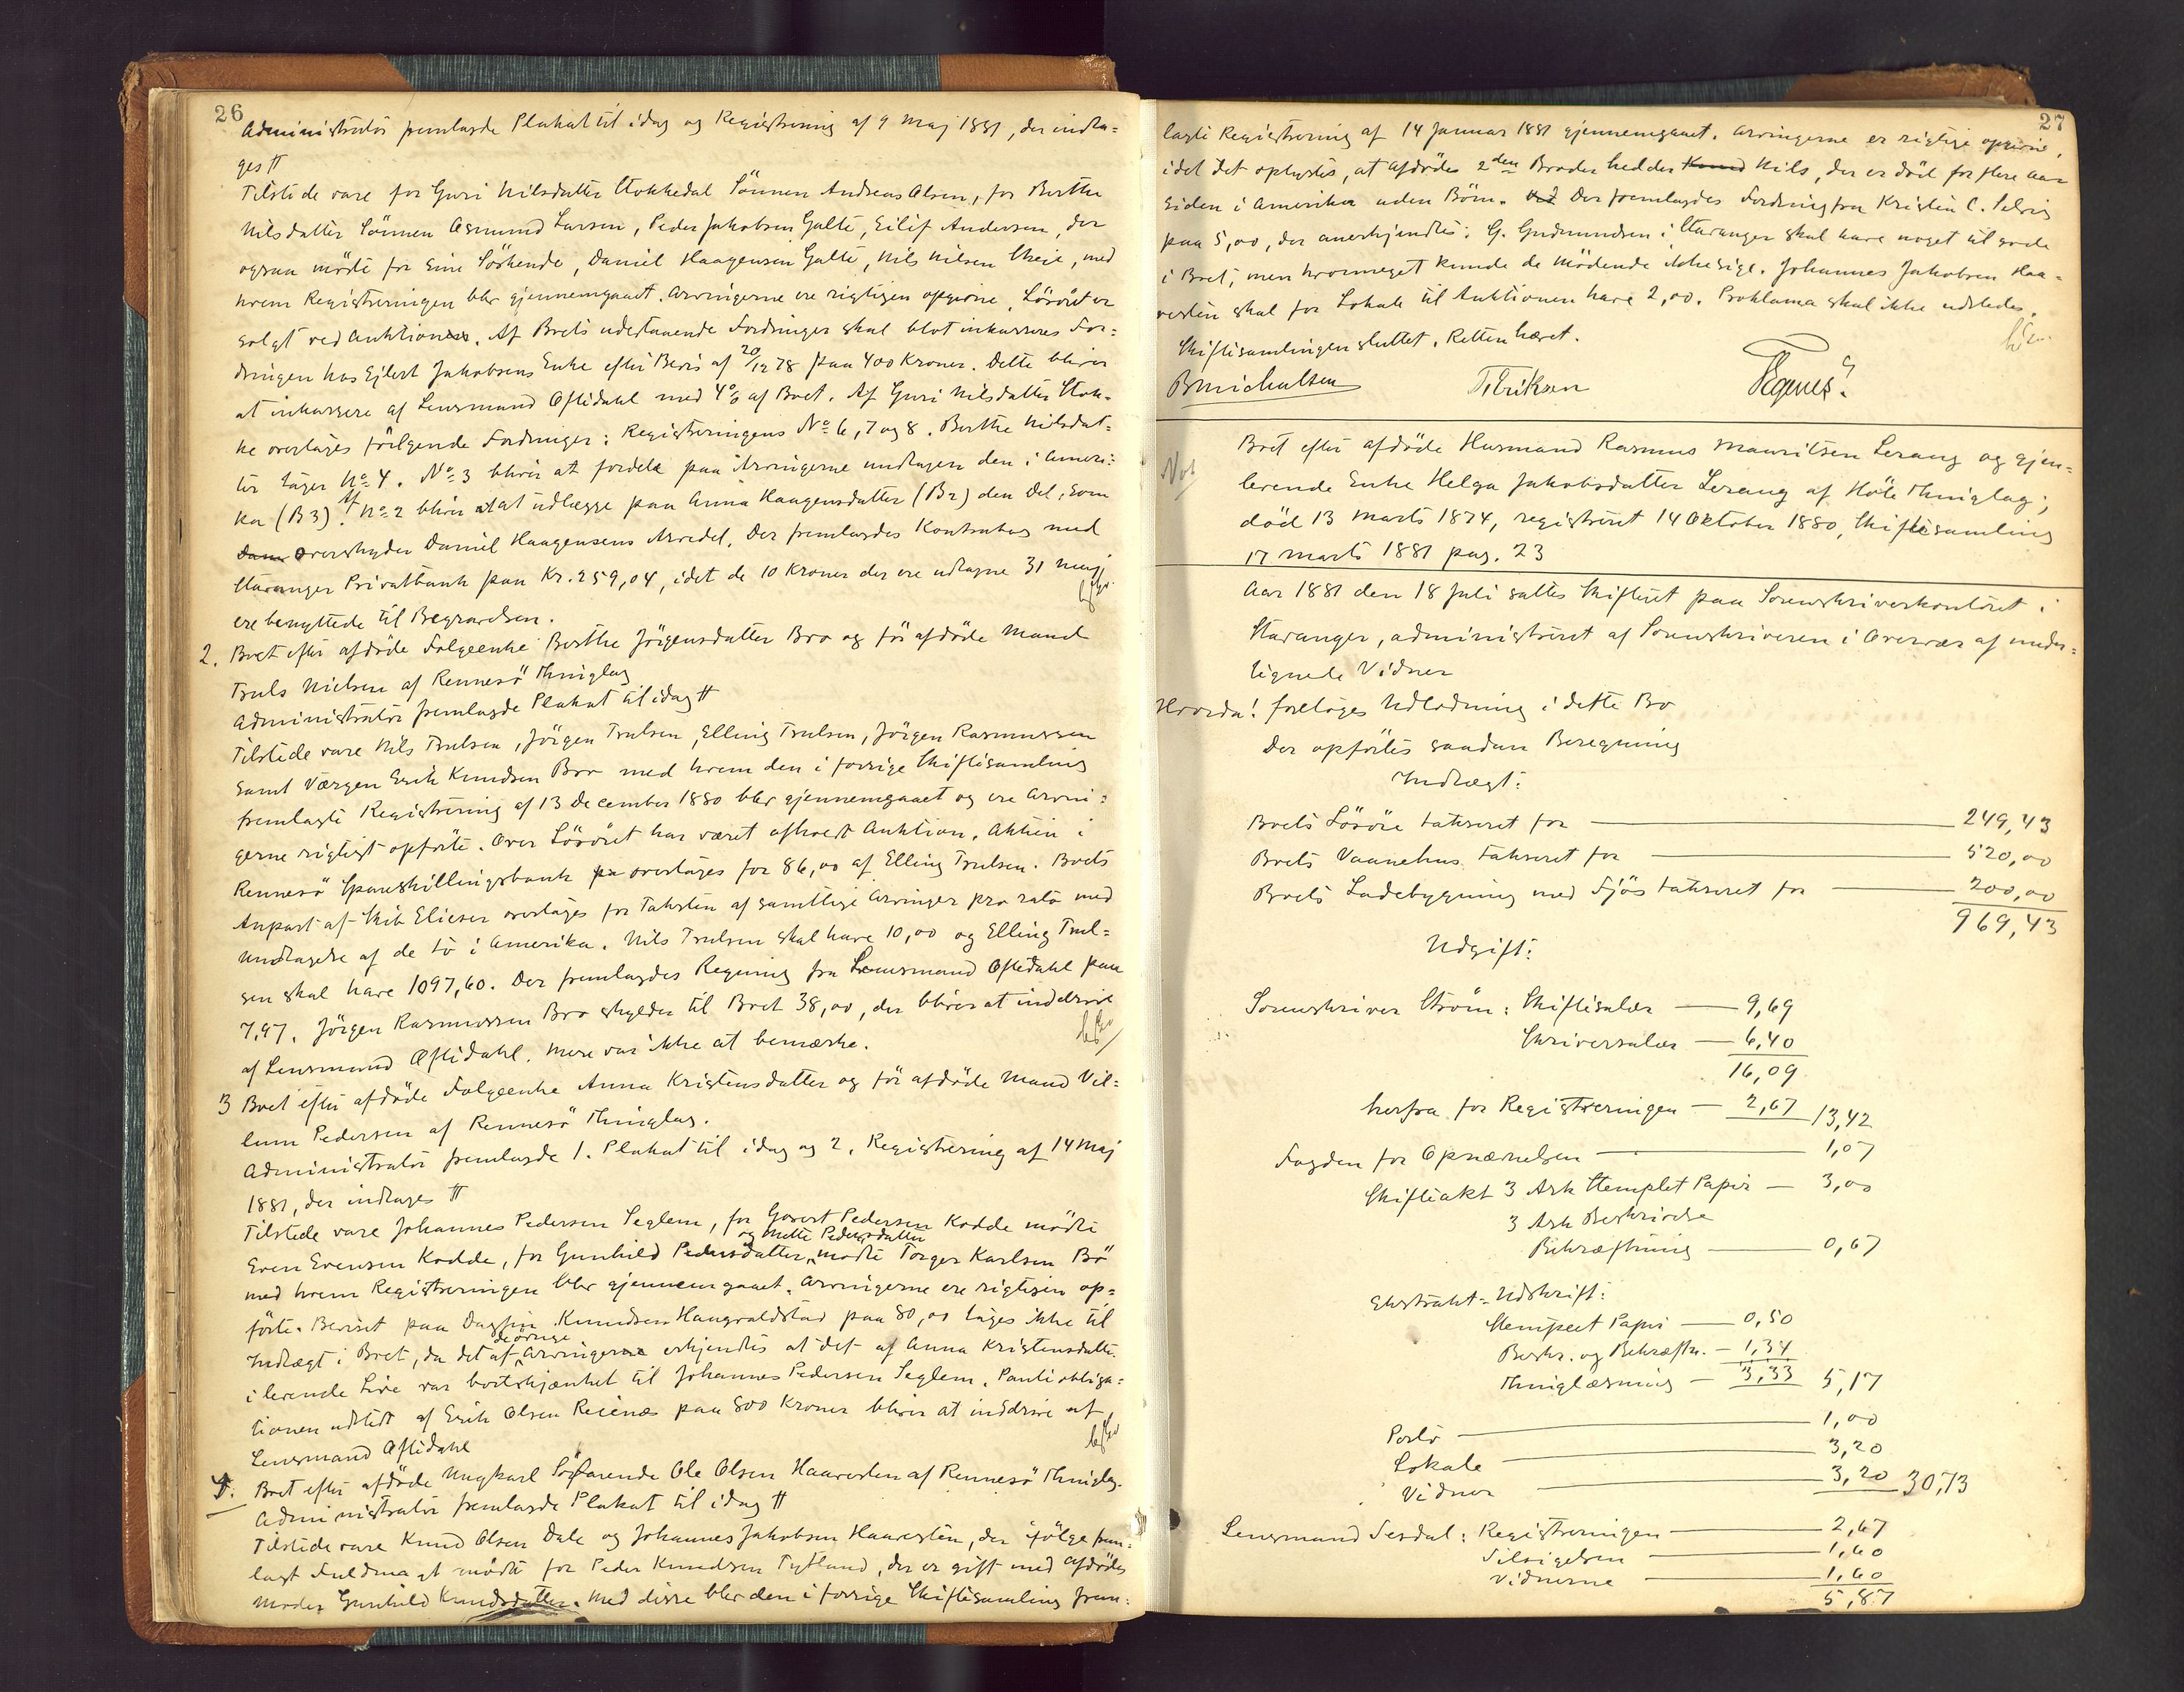 26
Administrator fremlagde Plakat til idag og Registrering af 9 Maj 1881, der indta=
ges #
Tilstede vare for Guri Nilsdatter Stokkedal Sönnen Andreas Olsen, for Berthe
Nilsdatter Sönnen Asmund Larsen, Peder Jakobsen Galte, Eilif Andersen, der
ogsaa mödte for sine Söskende, Daniel Haagensen Galte, Nils Nilsen Skeie, med
hvem Registreringen blev gjennemgaaet. Arvingerne ere rigtigen opgivne. Lösöret er
solgt ved Auktion. Af Boets udestaaende Fordringer skal blot inkasseres For=
dringen hos Ejlert Jakobsens Enke efter Bevis af 20/12 78 paa 400 Kroner. Dette bliver
at inkassere af Lensmand Oftedahl med 4% af Boet. Af Guri Nilsdatter Stok=
ke overtages fölgende Fordringer: Registreringens No 6, 7 og 8. Berthe Nilsdat=
ter tager No 4. No 3 bliver at fordele paa Arvingerne undtagen den i Ameri=
ka (B3). Af No 2 bliver at udlægge paa Anna Haagensdatter (B2) den Del, som
overskyder Daniel Haagensens Arvedel. Der fremlagdes Kontrabog med
Stavanger Privatbank paa Kr. 259,04, idet de 10 Kroner der ere udtagne 31 Maj
ere benyttede til Begravelsen.
2. Boet efter afdöde Folgeenke Berthe Jörgensdatter Bro og för afdöde Mand
Truls Nielsen af Rennesö Thinglag
Administrator fremlagde Plakat til idag #
Tilstede vare Nils Trulsen, Jörgen Trulsen, Elling Trulsen, Jörgen Rasmussen
samt Værgen Erik Knudsen Bro med hvem den i forrige Skiftesamling
fremlagte Registrering af 13 December 1880 blev gjennemgaaet og ere Arvin=
gerne rigtigt opförte. Over Lösöret har været afholdt Auktion. Aktien i
Rennesö Spareskillingsbank overtages for 86,00 af Elling Trulsen. Boets
Anpart af Skib Elieser overtages for Taksten af samtlige Arvinger pro rata med
Undtagelse af de to i Amerika. Nils Trulsen skal have 10,00 og Elling Trul=
sen skal have 1097,60. Der fremlagdes Regning fra Lensmand Oftedahl paa
7,97. Jörgen Rasmussen Bro skylder til Boet 38,00, der bliver at inddrive
af Lensmand Oftedahl. Mere var ikke at bemærke.
3 Boet efter afdöde Folgeenke Anna Kristensdatter og för afdöde Mand Vil=
lum Pedersen af Rennesö Thinglag.
Administrator fremlagde 1. Plakat til idag og 2. Registrering af 14 Maj
1881, der indtages #
Tilstede vare Johannes Pedersen Seglem, for Govert Pedersen Kodde mödte
og Mette Pedersdatter
Even Evensen Kodde, for Gunhild Pedersdatter mödte Torger Karlsen Bö
med hvem Registreringen blev gjennemgaaet. Arvingerne ere rigtigen op=
förte. Beviset paa Knudsen Haugvaldstad paa 80,00 tages ikke til
de övrige
Indtægt i Boet, da det af Arvingerne erkjendtes at det af Anna Kristensdatter
i levende Live var bortskjænket til Johannes Pedersen Seglem. Pantobliga=
tionen udstedt af Erik Olsen Reienæs paa 800 Kroner bliver at inddrive af
Lensmand Oftedahl
4. Boet efter afdöde Ungkarl Söfarende Ole Olsen Haavesten af Rennesö Thinglag.
Administrator fremlagde Plakat til idag #
Tilstede vare Knud Olsen Dale og Johannes Jakobsen Haavesten, der ifölge frem=
lagt Fuldmagt mödte for Peder Knudsen Tytland, der er gift med Afdödes
Moder Gunhild Knudsdatter. Med disse blev den i forrige Skiftesamling frem=
27
lagte Registrering af 14 Januar 1881 gjennemgaaet. Arvingerne er rigtige opgivne,
idet det oplystes, at Afdödes 2den Broder hedder Nils, der er död for flere Aar
siden i Amerika uden Börn. Der fremlagdes Fordring fra Kristen C.
paa 5,00, der anerkjendtes. G. Gudmundsen i Stavanger skal have noget til gode
i Boet, men hvormeget kunde de Mödende ikke sige. Johannes Jakobsen Haa=
vesten skal for Lokale til Auktionen have 2,00. Proklama skal ikke udstedes.
Skiftesamlingen sluttet. Retten hævet.
B Michalsen
Boet efter afdöde Husmand Rasmus Mauritsen Lerang og gjen=
levende Enke Helga Jakobsdatter Lerang af Höle Thinglag;
död 13 Marts 1874, registreret 14 Oktober 1880, Skiftesamling
17 Marts 1881 pag. 23
Aar 1881 den 18 Juli sattes Skifteret paa Sorenskriverkontoret i
Stavanger, administreret af Sorenskriveren i Overvær af under=
tegnede Vidner
Hvorda! foretoges Udlodning i dette Bo
Der opförtes saadan Beregning
Indtægt:
Boets Lösöre takseret for 249,43
Boets Vaanehus takseret for 520,00
Boets Ladebygning med Fjös takseret for 200,00
969,43
Udgift:
Sorenskriver Ström: Skiftesalær 9,69
Skriversalær 6,40
16,09
herfra for Registreringen 2,67 13,42
Fogden for Opnævnelsen 1,07
Skifteakt 3 Ark Stemplet Papir 3,00
3 Ark Beskrivelse
Bekræftning 0,67
Ekstrakt-Udskrift:
Stemplet Papir 0,50
Beskr. og Bekræftn. 1,34
Thinglæsning 3,33 5,17
Porto 1,00
Lokale 3,20
Vidner 3,20 30,73
Lensmand Sesdal: Registreringen 2,67
Tilsigelsen 1,60
Vidnerne 1,60
5,87